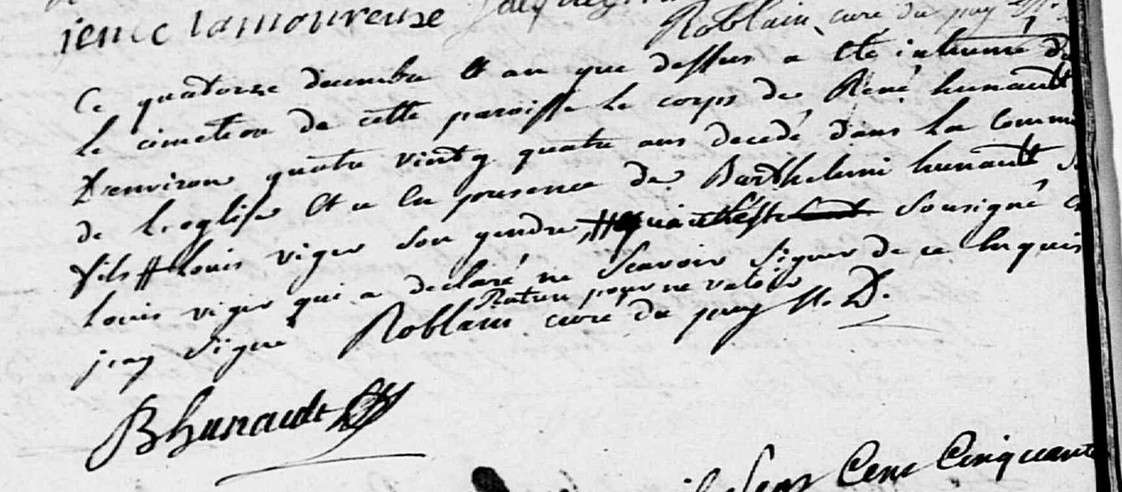 lamoureuse
Roblain curé du puy N.
Ce quatorze decembre et an que dessus a ete inhumé d
le cimetiere de cette paroisse le corps de René hunault
D'environ quatre vint quatre ans decedé dans la Comm
de l'eglise Et en la presence de Barthelemi hunault
fils # louis viger son gendre, # sousigné
louis viger qui a declaré ne scavoir signer de ce Enquis
Rature pour ne valoir
jay signé Roblain curé du puy N. D.
BHunault
Cent Cinquante